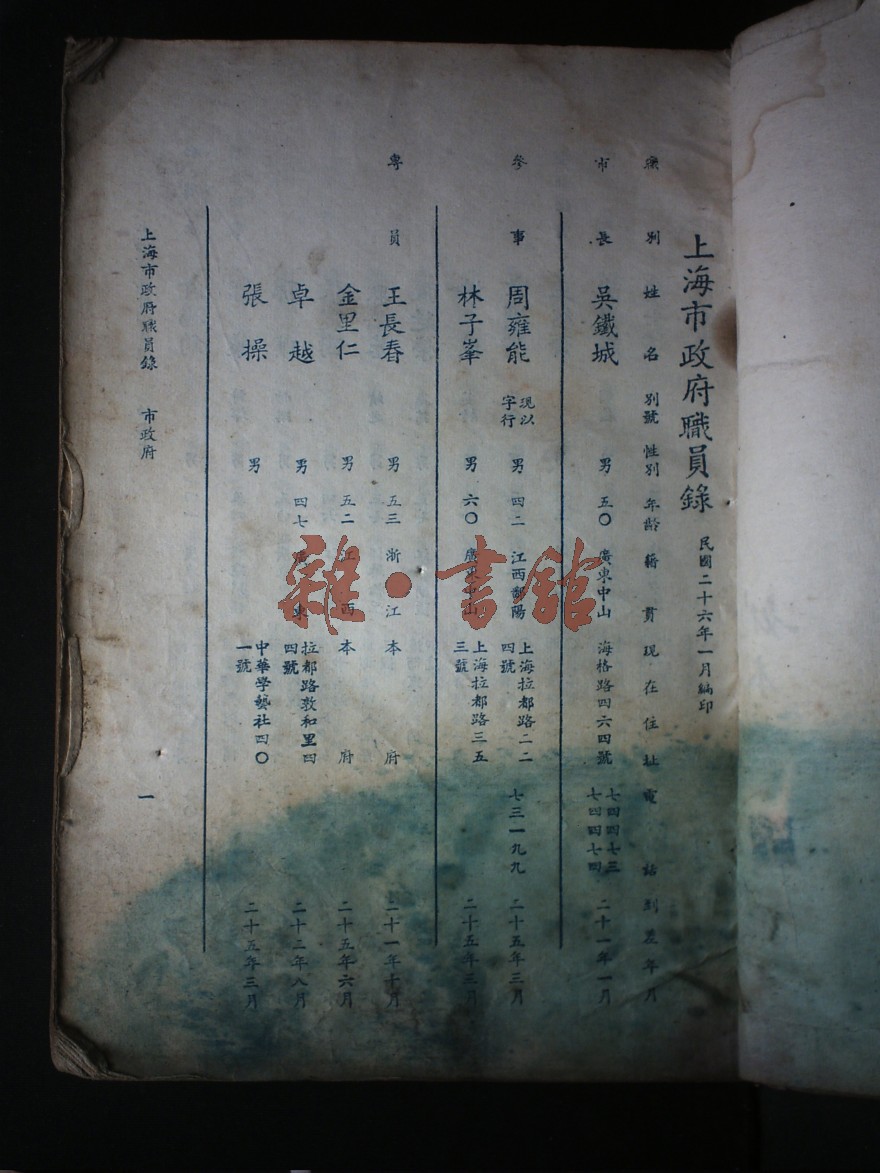 上海市政府職員錄 民國二十六年一月編印
職別 姓名 別號 性別 年齡 籍貫 現在住址 電話 到差年月
市長 吳鐵城 男 五〇 廣東中山 海格路四六四號 七四四七三 七四四七四 二十一年一月
參事 周雍能 現以字行 男 四二 江西鄱陽 上海拉都路二二四號 七三一九九 二十五年三月
林子峯 男 六〇 廣東中山 上海拉都路三五三號 二十五年三月
專員 王長春 男 五三 浙江 本府 二十一年十月
金里仁 男 五二 江西 本府 二十五年六月
卓越 男 四七 廣東 拉都路敦和里四四號 二十二年八月
張操 男 中華學藝社四〇一號 二十五年三月
上海市政府職員錄 市政府 一
雜·書館